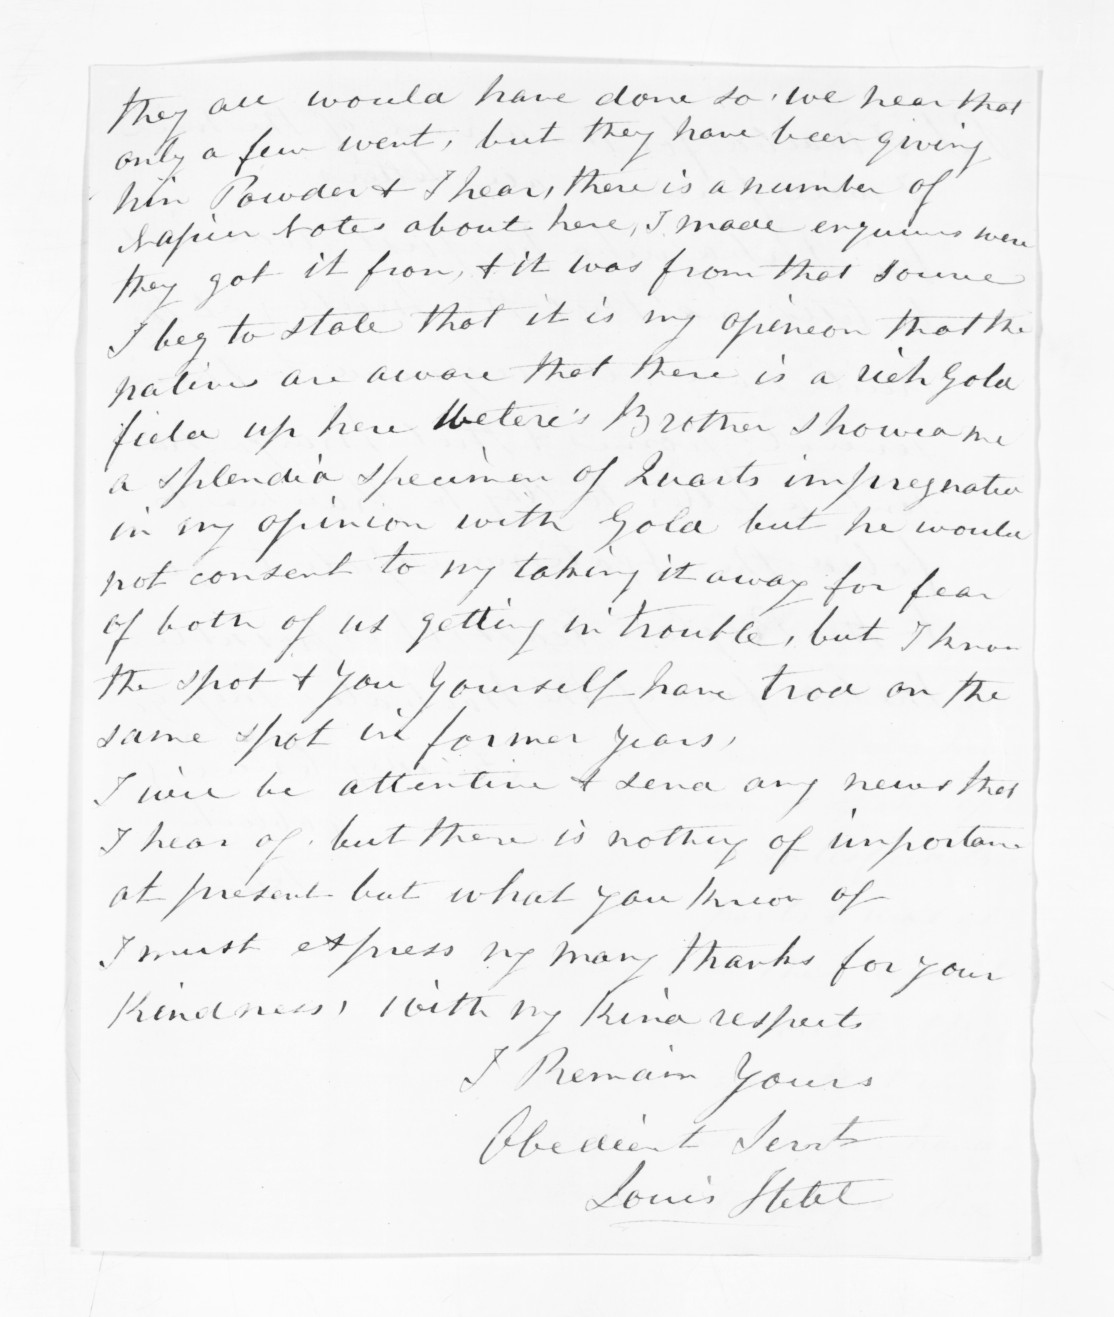 they all would have done so. we hear that
only a few went, but they have been giving
him Powder & I hear, there is a number of
Napier Notes about here, I made enquiries were
they got it from, & it was from that source
I beg to state that it is my opineon that the
natives are aware that there is a rich Gold
field up here Wetere's Brother showed me
a splendid specimen of Quarts impregnated
in my opinion with Gold but he would
not consent to my taking it away for fear
of both of us getting in trouble, but I know
the spot & You Yourself have trod on the
same spot in former years,
I will be attentive & send any news that
I hear of. but there is nothing of importance
at present but what you know of
I must express my many thanks for your
Kindness, with my kind respects
I Remain Yours
Obedient Servt
Louis